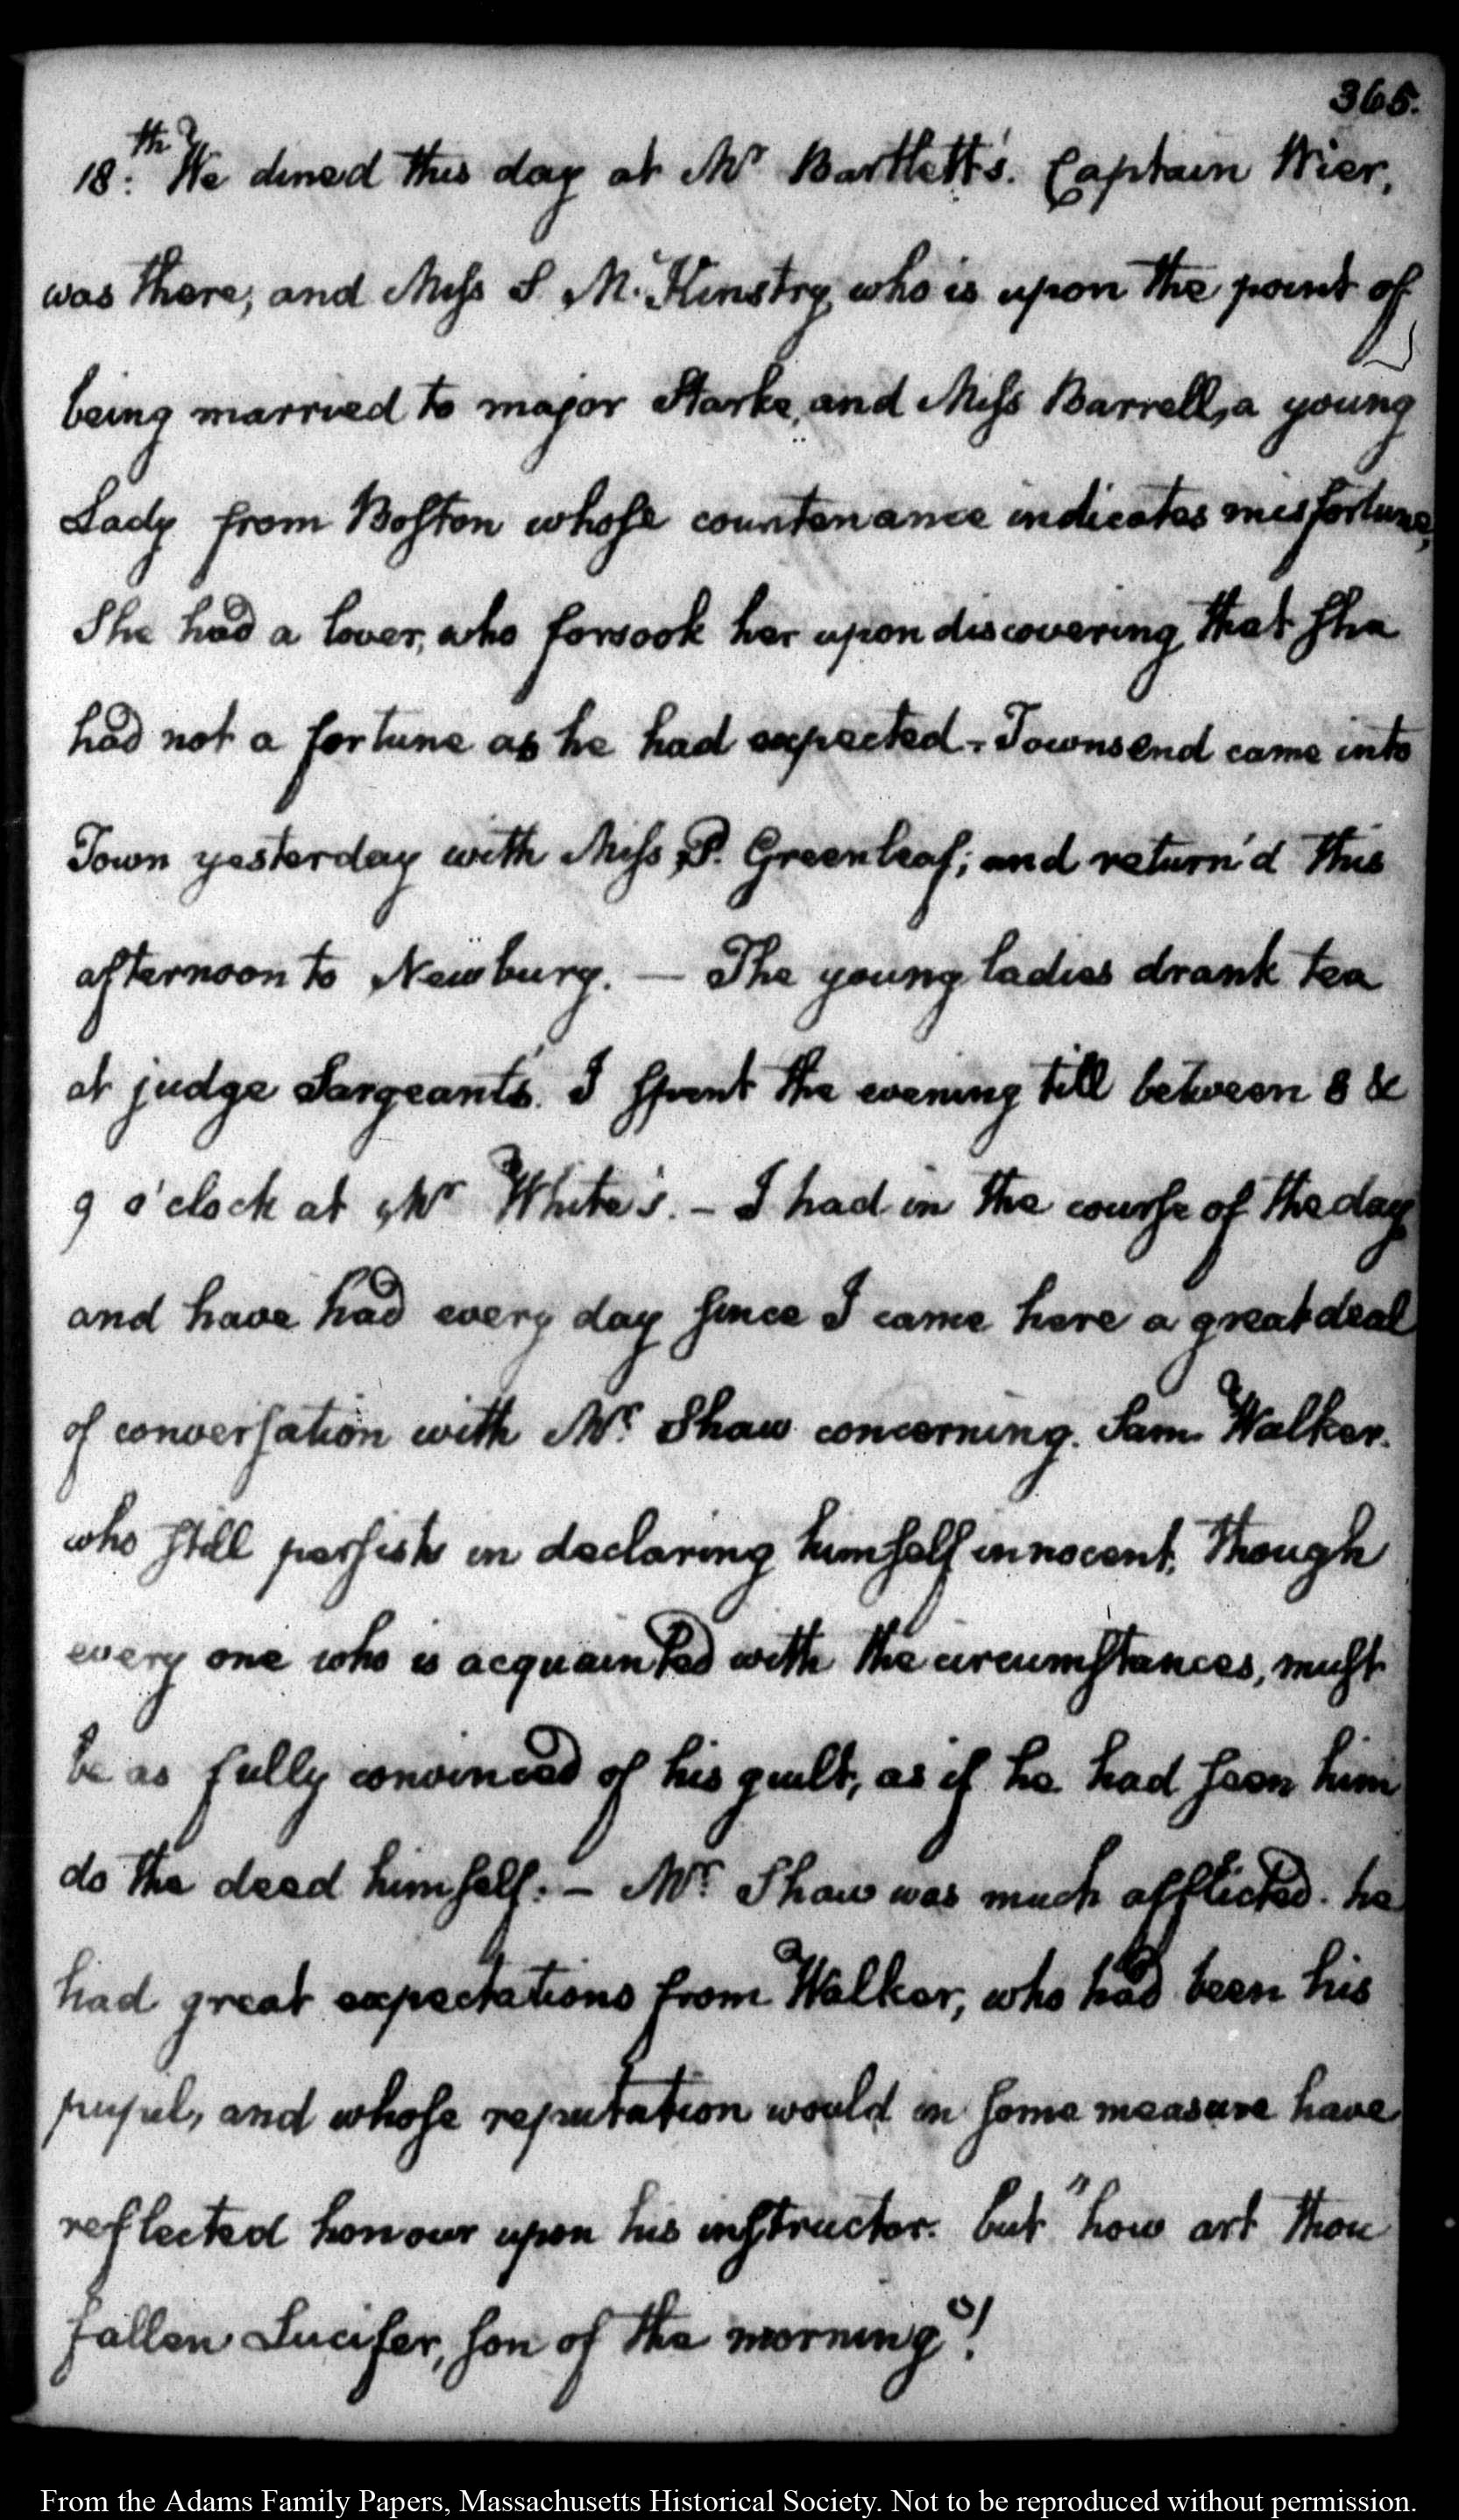 365.
18:th We dined this day at Mr Bartlett's. Captain Wier,
was there, and Miss S McKinstry, who is upon the point of
being married to major Starke, and Miss Barrell, a young
Lady from Boston whose countenance indicates misfortune,
She had a lover, who forsook her upon discovering that she
had not a fortune as he had expected. Townsend came into
Town yesterday with Miss P. Greenleaf; and return'd this
afternoon to Newbury. — The young ladies drank tea
at judge Sargeant's. I spent the evening till between 8 &
9 o'clock at Mr White's. – I had in the course of the day
and have had every day since I came here a great deal
of conversation with Mr Shaw concerning. Sam Walker.
who still persists in declaring himself innocent, though
every one who is acquainted with the circumstances, must
be as fully convinced of his guilt, as if he had seen him
do the deed himself. – Mr Shaw was much afflicted. he
had great expectations from Walker, who had been his
pupil, and whose reputation would in some measure have
reflected honour upon his instructor. but "how art thou
fallen Lucifer, son of the morning"!
From the Adams Family Papers, Massachusetts Historical Society. Not to be reproduced without permission.